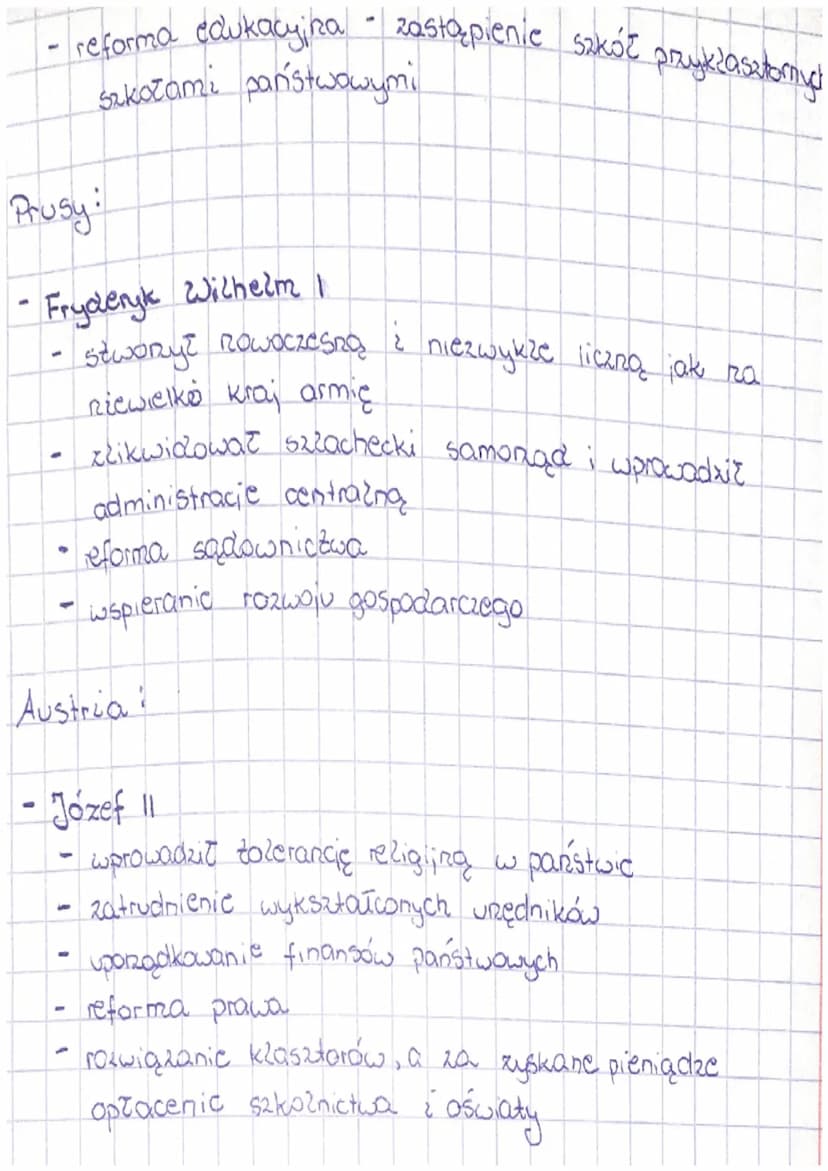 - reforma edukacyjna - zastąpienie szkół przyklasztornych
szkołami państwowymi
Prusy:
- Fryderyk Wilhelm I
- stworzył nowoczesną i niezwykle liczną jak na
niewielki kraj armię
- zlikwidował szlachecki samorząd i wprowadził
administrację centralną
- reforma sądownictwa
- wspieranie rozwoju gospodarczego
Austria:
- Józef II
- wprowadził tolerancję religijną w państwie
- zatrudnienie wykształconych urzędników
- uporządkowanie finansów państwowych
- reforma prawa
- rozwiązanie klasztorów, a za zyskane pieniądze
opłacenie szkolnictwa i oświaty